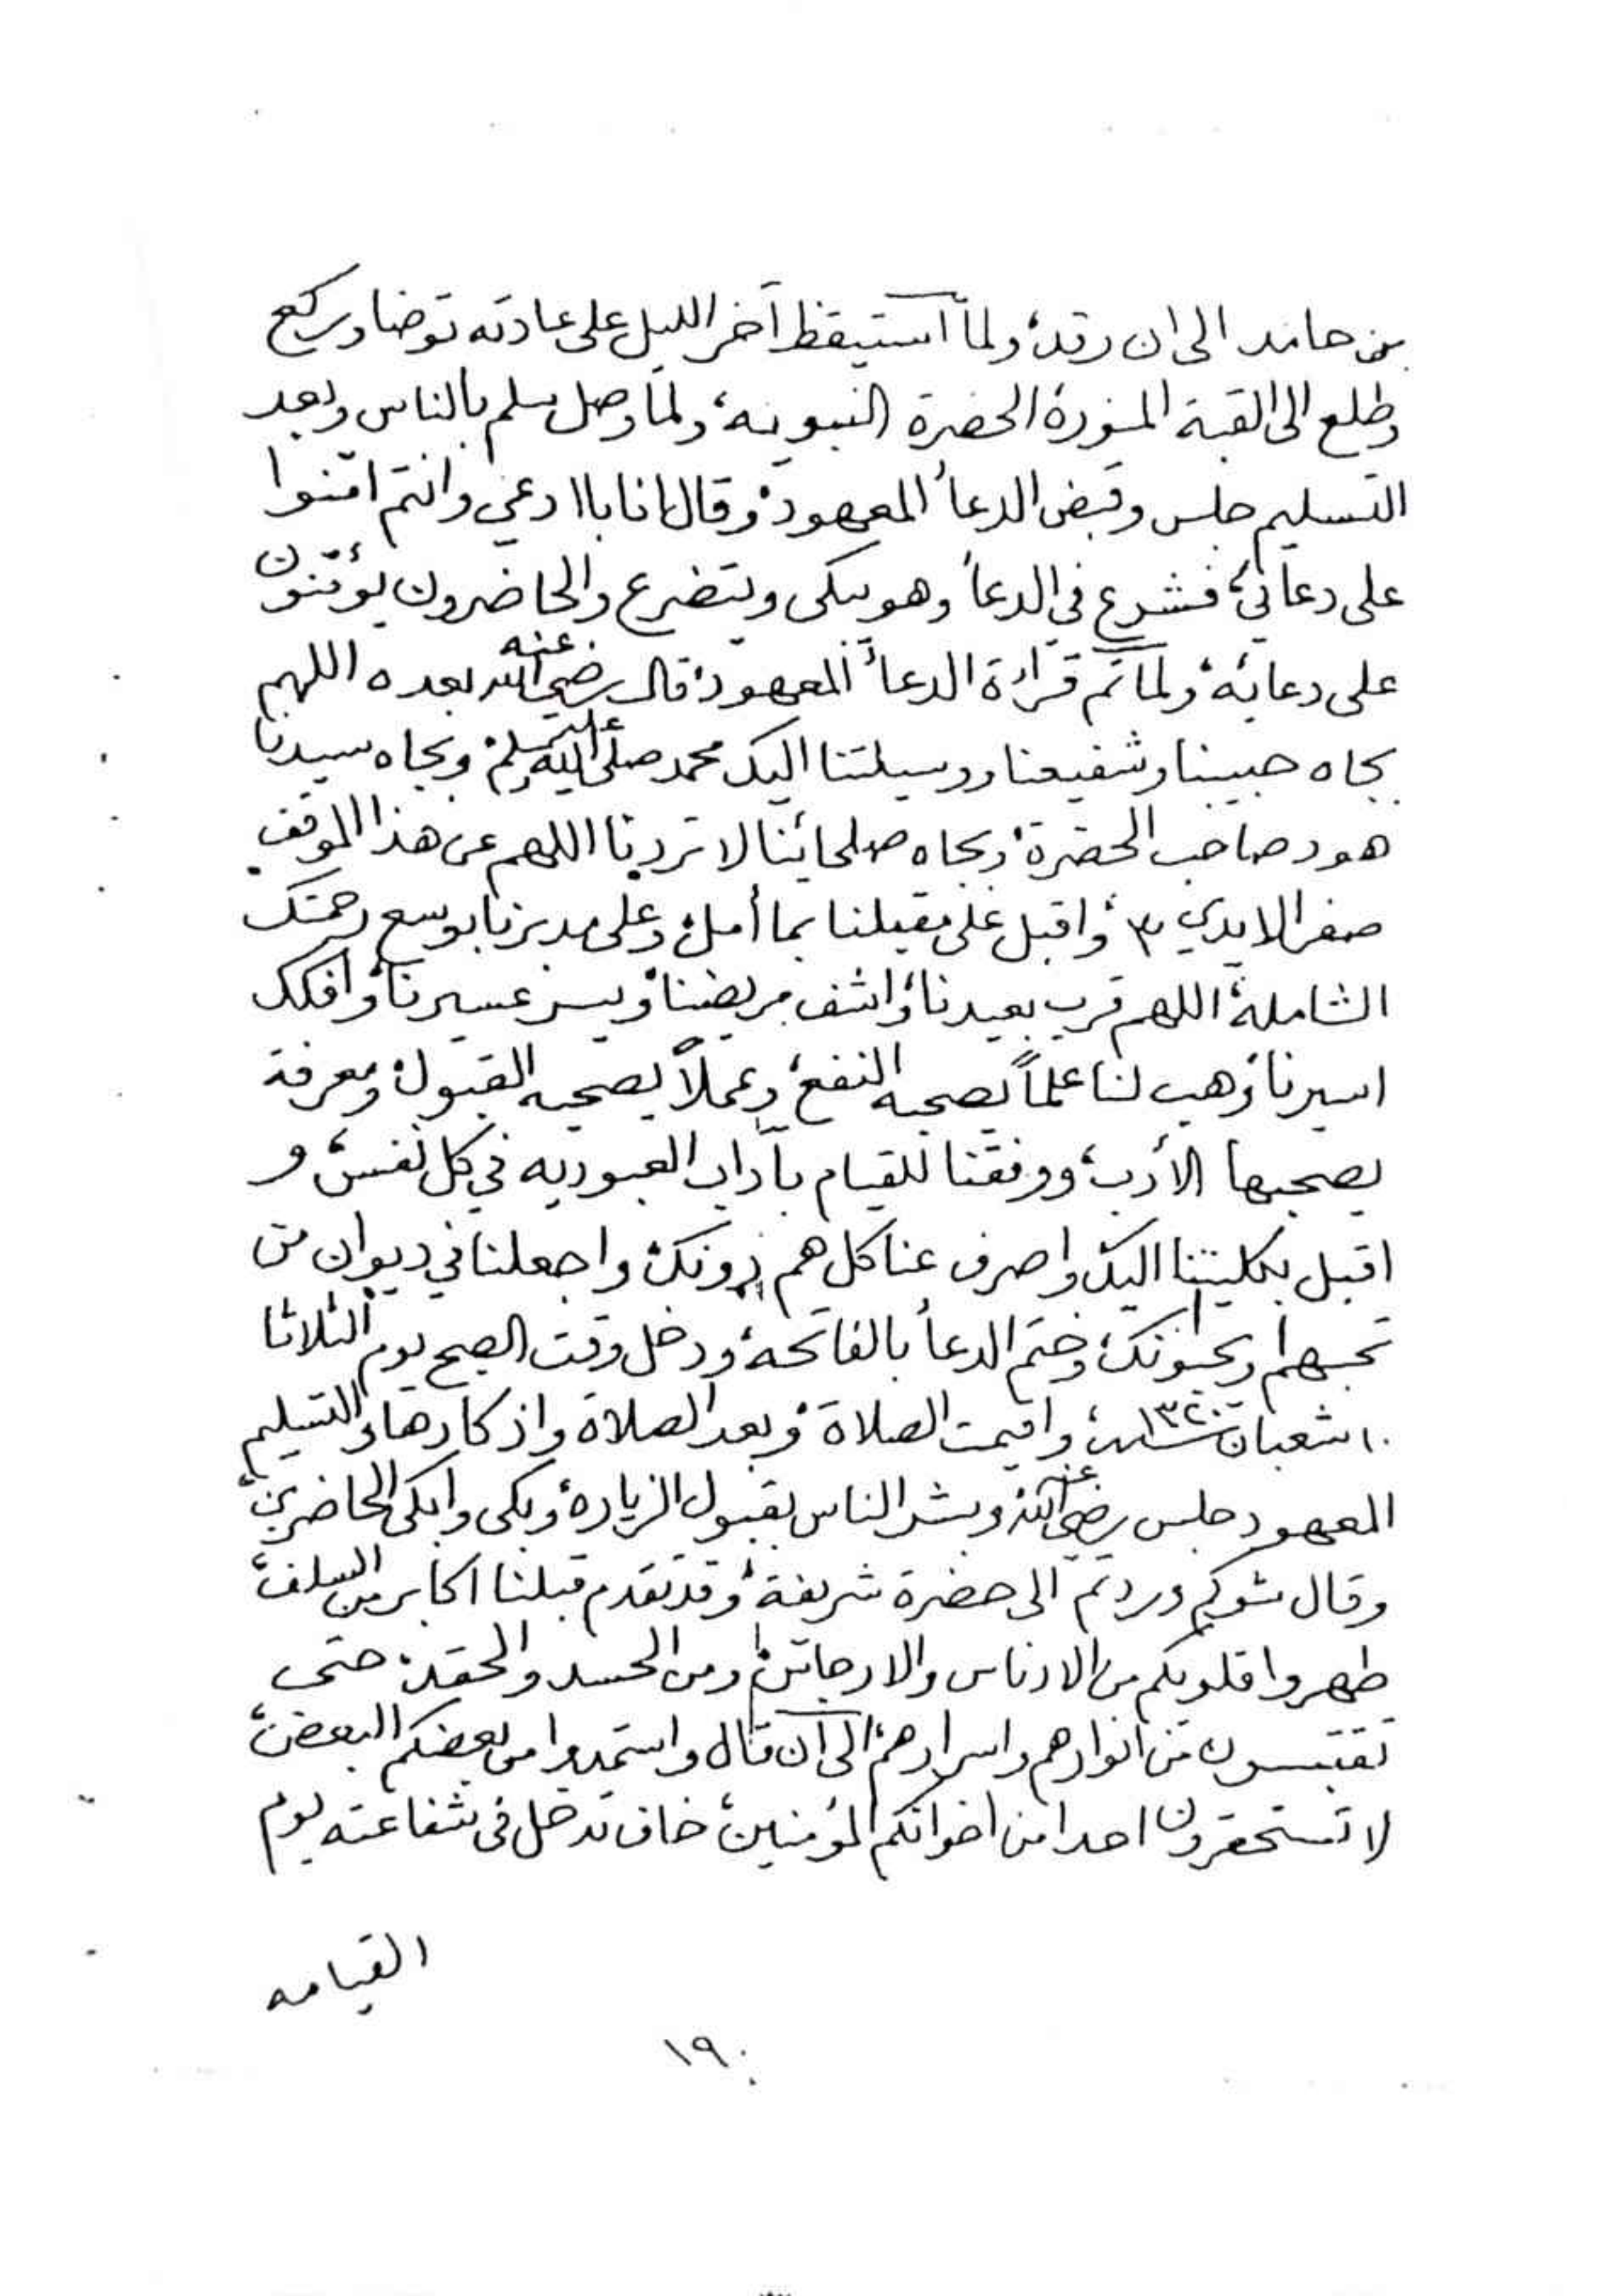 بن حامد الى ان رقد، ولما استيقظ آخر الليل على عادته توضا وركع
وطلع الى القبة المنورة الحضرة النبويه، ولما وصل سلم بالناس وبعد
التسليم جلس وقبض الدعأ المعهود، وقال انا باادعي وانتم امّنوا
على دعائي، فشرع في الدعأ وهو يبكى ويتضرع والحاضرون يؤمّنون
على دعائه، ولما تم قراءة الدعأ المعهود، قال رضي الله عنه بعده اللهم
بجاه حبيبنا وشفيعنا ووسيلتنا اليك محمد صلى الله عليه وسلم، وبجاه سيدنا
هود صاحب الحضرة، وبجاه صلحائنا لا تردنا اللهم عن هذا الموقف
صفر الايدي ٣، واقبل على مقبلنا بما أمل، وعلى مدبرنا بوسع رحمتك
الشاملة، اللهم قرب بعيدنا، واشف مريضنا، ويسر عسيرنا، وافكك
اسيرنا، وهب لنا علماً يصحبه النفع، وعملاً يصحبه القبول، ومعرفة
يصحبها الأدب، ووفقنا للقيام بآداب العبوديه في كل نفس، و
اقبل بكليتنا اليك، واصرف عنا كل هم دونك، واجعلنا في ديوان من
تحبهم ويحبونك، وختم الدعأ بالفاتحة، ودخل وقت الصبح يوم الثلاثا
١٠ شعبان سنة ١٣٢٠، واقيمت الصلاة، وبعد الصلاة واذكارها، والتسليم
المعهود جلس رضي الله عنه، وبشر الناس بقبول الزيارة، وبكى وابكى الحاضرين،
وقال شوكم وردتم الى حضرة شريفة، وقد تقدم قبلنا اكابر من السلف،
طهروا قلوبكم من الادناس والارجاس، ومن الحسد والحقد، حتى
تقتبسون من انوارهم واسرارهم، الى ان قال واستمدوا من بعضكم البعض،
لا تستحقرون احدا من اخوانكم المؤمنين، خاف تدخل في شفاعته يوم
القيامه
١٩٠